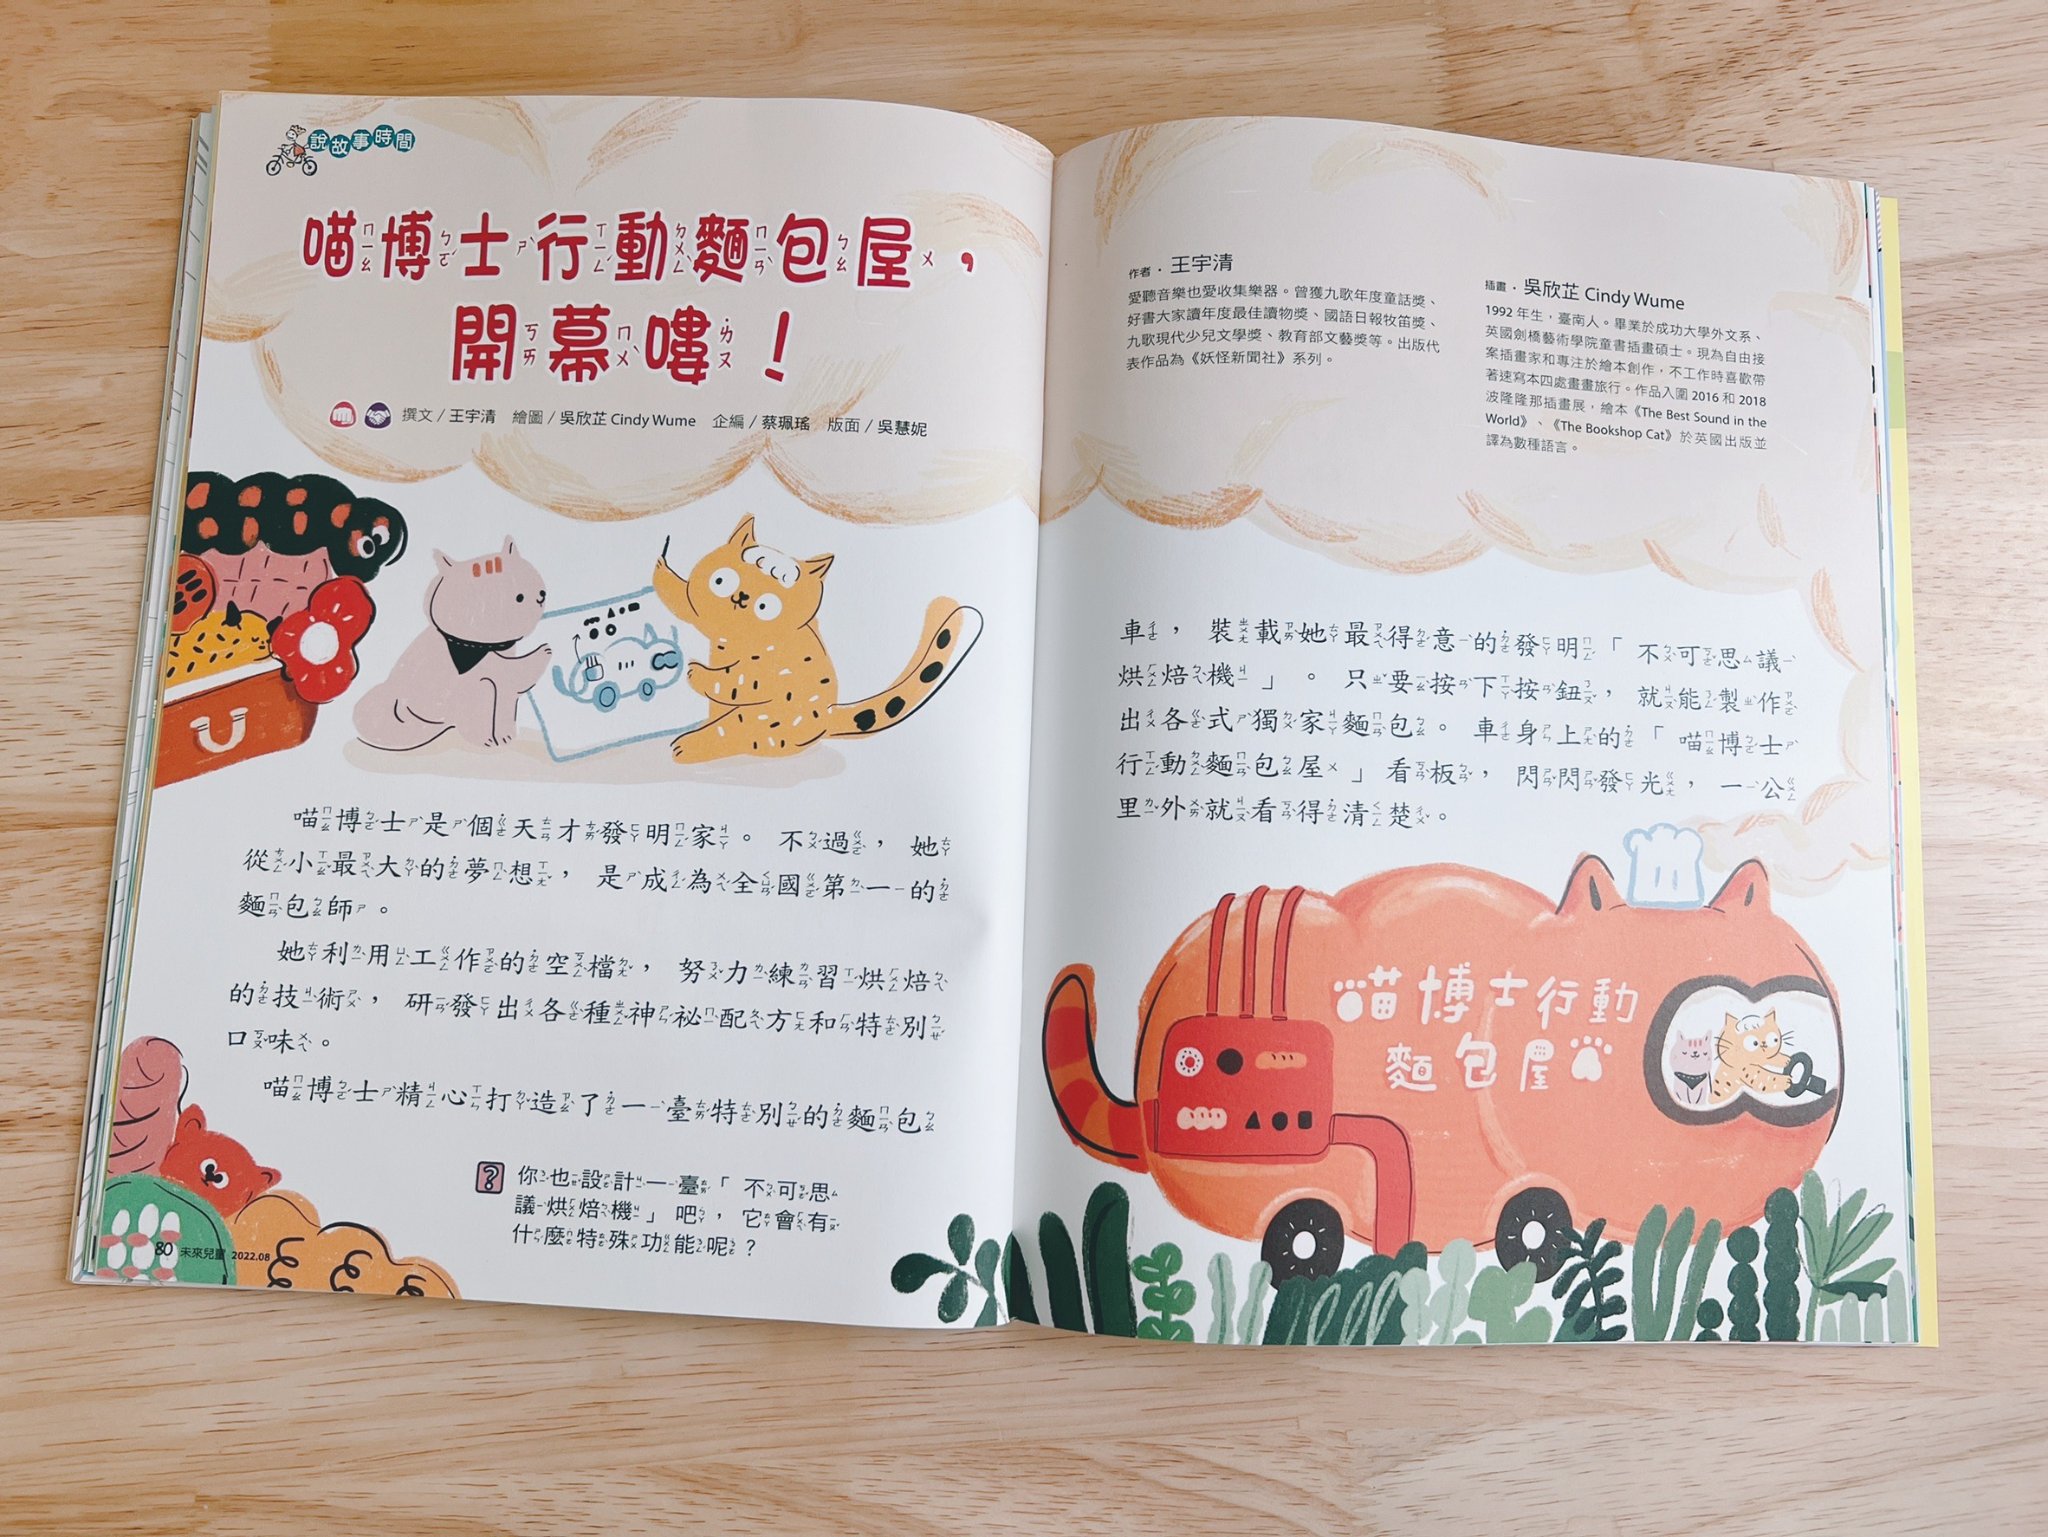 說故事時間
喵博士行動麵包屋，
開幕嘍！
撰文／王宇清 繪圖／吳欣芷 Cindy Wume 企編／蔡珮瑤 版面／吳慧妮
喵博士是個天才發明家。不過，她
從小最大的夢想，是成為全國第一的
麵包師。
她利用工作的空檔，努力練習烘焙
的技術，研發出各種神祕配方和特別
口味。
喵博士精心打造了一臺特別的麵包
你也設計一臺「不可思
議烘焙機」吧，它會有
什麼特殊功能呢？
80 未來兒童 2022.08
作者．王宇清
愛聽音樂也愛收集樂器。曾獲九歌年度童話獎、
好書大家讀年度最佳讀物獎、國語日報牧笛獎、
九歌現代少兒文學獎、教育部文藝獎等。出版代
表作品為《妖怪新聞社》系列。
插畫．吳欣芷 Cindy Wume
1992 年生，臺南人。畢業於成功大學外文系、
英國劍橋藝術學院童書插畫碩士。現為自由接
案插畫家和專注於繪本創作，不工作時喜歡帶
著速寫本四處畫畫旅行。作品入圍 2016 和 2018
波隆隆那插畫展，繪本《The Best Sound in the
World》、《The Bookshop Cat》於英國出版並
譯為數種語言。
車，裝載她最得意的發明「不可思議
烘焙機」。只要按下按鈕，就能製作
出各式獨家麵包。車身上的「喵博士
行動麵包屋」看板，閃閃發光，一公
里外就看得清楚。
喵博士行動
麵包屋